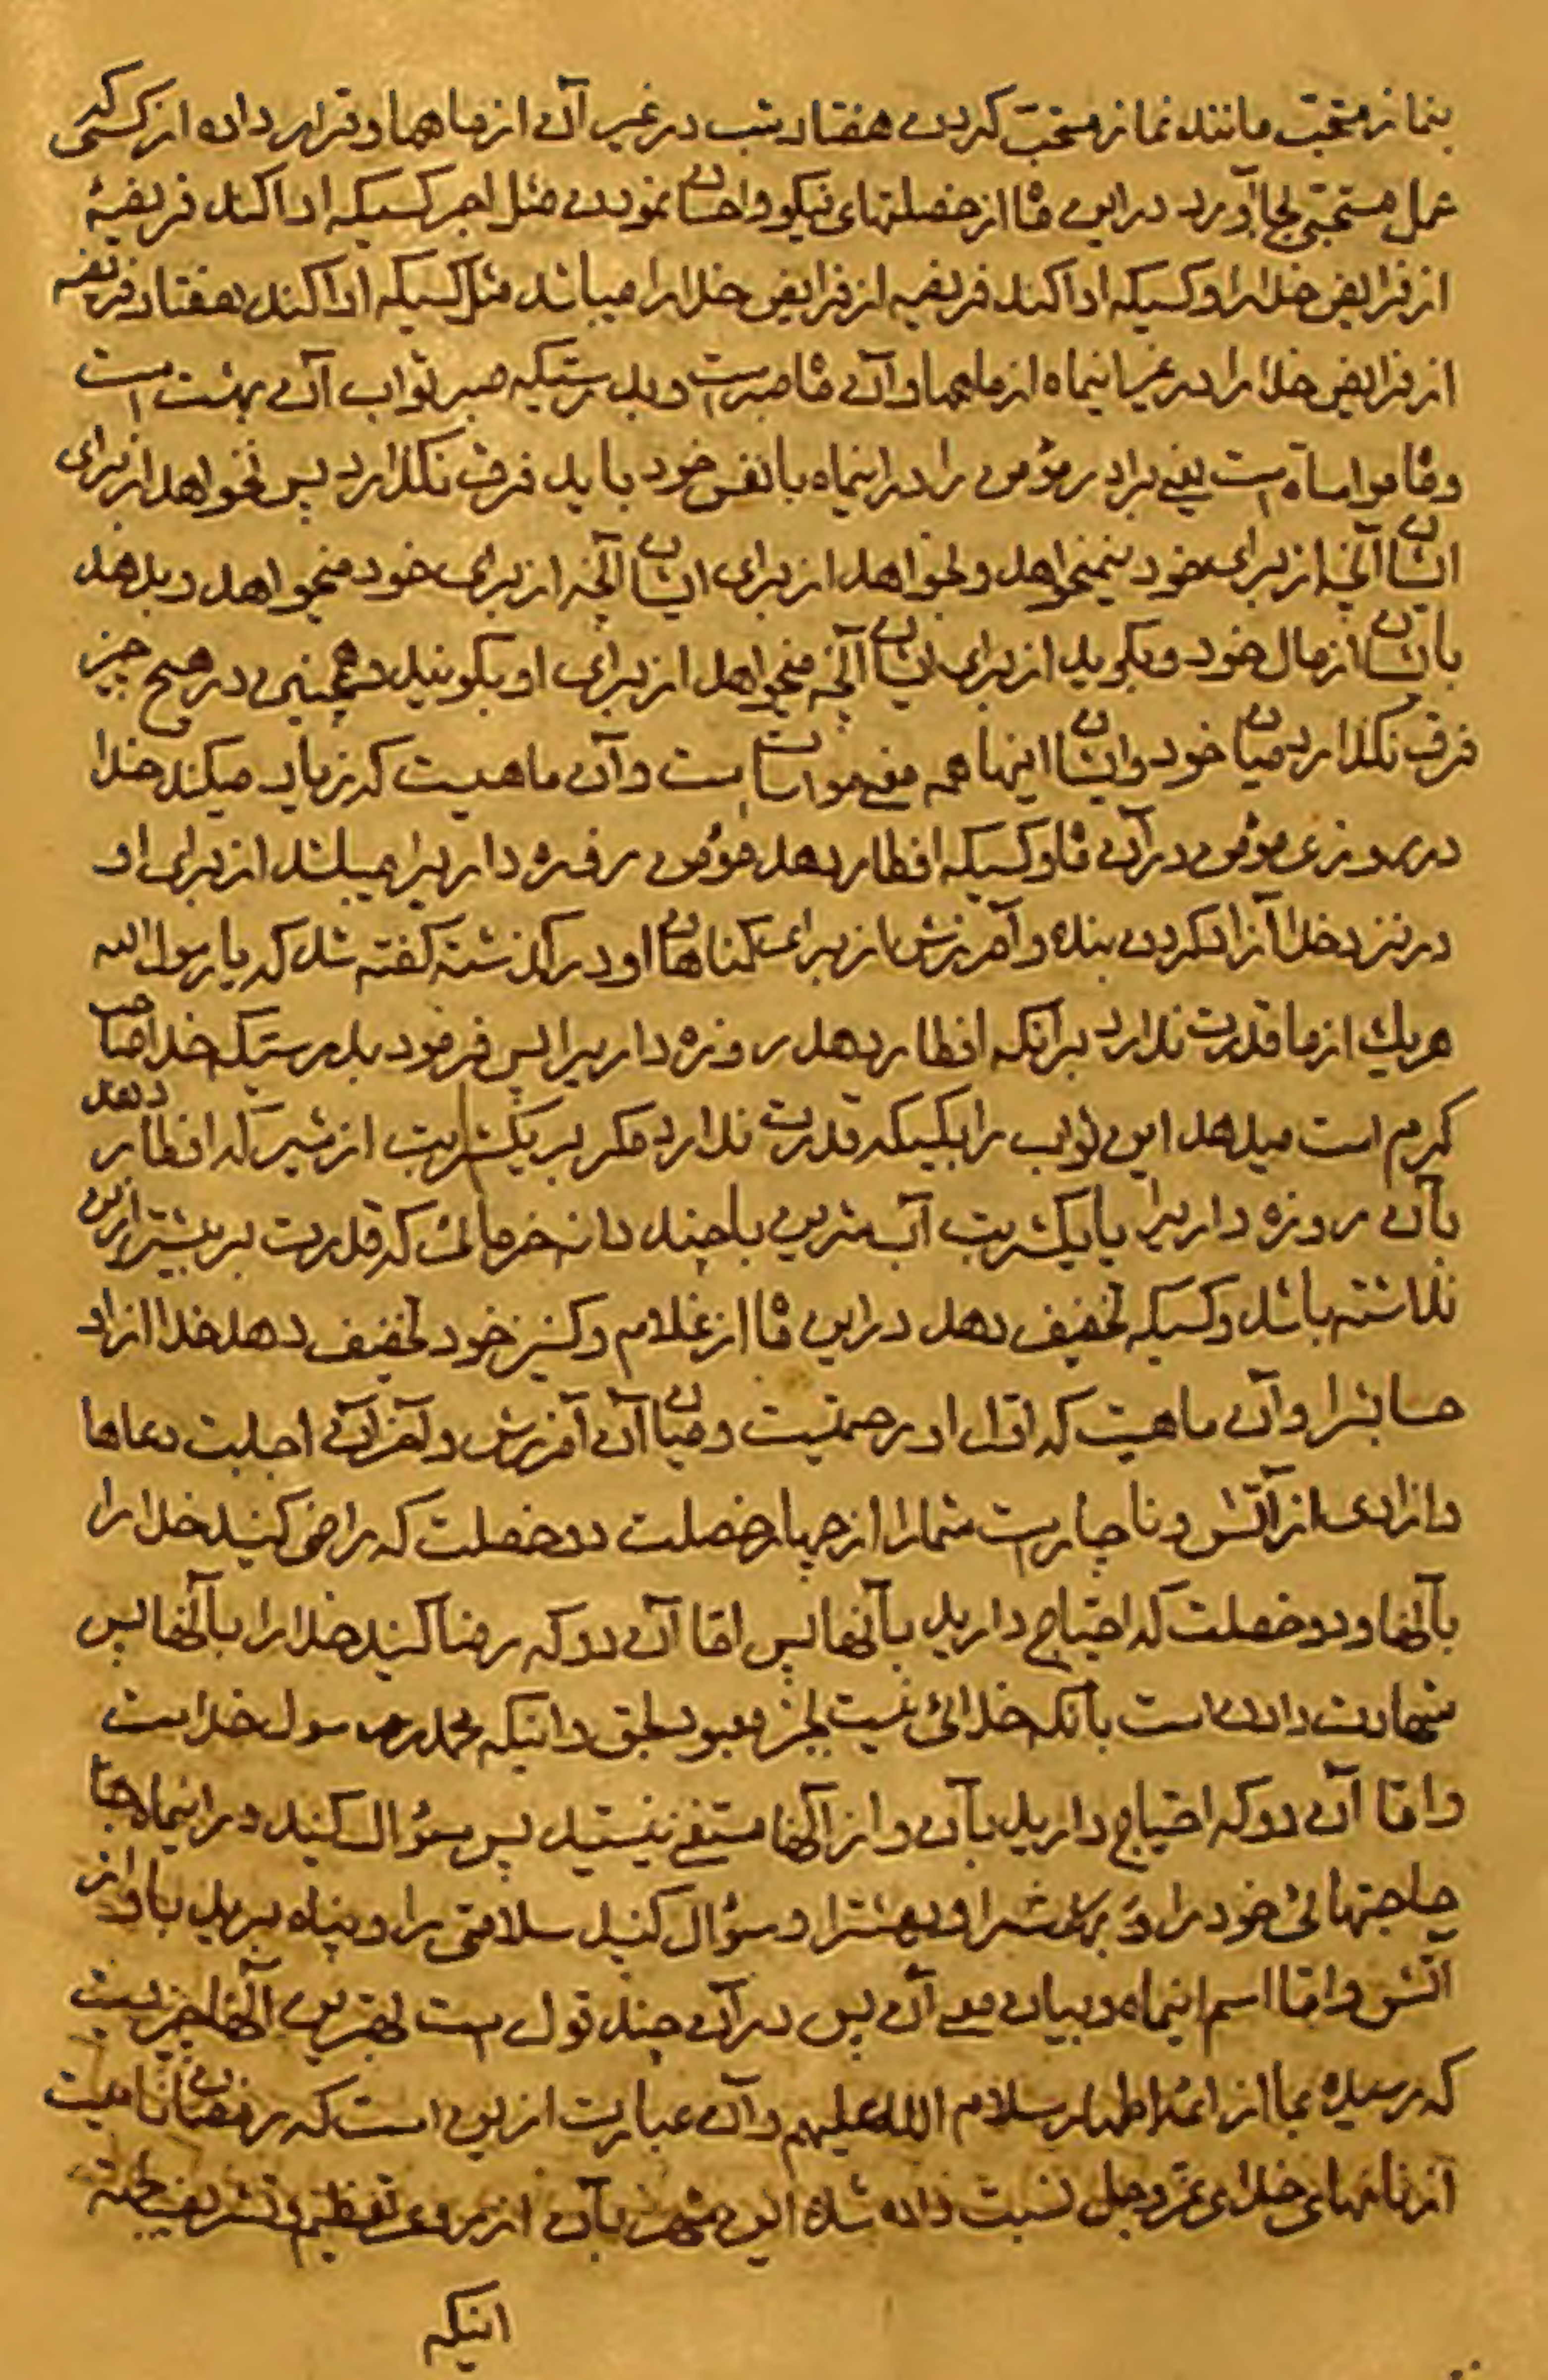 بنماز مستحبّ مانند نماز مستحبّ کردن هفتاد شب در غیر آن از ماهها و قرار داده از کسی که
عمل مستحبّی بجا آورد در این ماه از خصلتهای نیکو و احسان نمودن مثل اجر کسیکه ادا کند فریضهٔ
از فرایض خدا را و کسیکه ادا کند فریضه از فرایض خدا را میباشد مثل کسیکه ادا کند هفتاد فریضه
از فرایض خدا را در غیر اینماه از ماهها و آن ماه صبر است و بدرستیکه صبر ثواب آن بهشت است
و ماه مواساة است یعنی برادر مؤمن را در اینماه با نفس خود باید فرق نگذارد پس نخواهد از برای
ایشان آنچه از برای خود نمیخواهد و بخواهد از برای ایشان آنچه از برای خود میخواهد و بدهد
بایشان از مال خود و بگوید از برای ایشان آنچه میخواهد از برای او بگویند و همچنین در هیچ چیز
فرق نگذارد میان خود و ایشان اینها همه معنی مواسات است و آن ماهیست که زیاد میکند خدا
در روزی مؤمن در آن ماه و کسیکه افطار دهد مؤمن روزه داریرا میباشد از برای او
در نزد خدا آزاد کردن بنده و آمرزش از برای گناهان او در گذشته گفته شد که یا رسول الله
هر یک از ما قدرت ندارد بر آنکه افطار دهد روزه داریرا پس فرمود بدرستیکه خدا صاحب
کرم است میدهد این ثواب را بکسیکه قدرت ندارد مگر بر یکشربت از شیر که افطار دهد
بآن روزه داریرا یا یکشربت آب شیرین یا چند دانه خرمائی که قدرت بر بیشتر از این
نداشته باشد و کسیکه تخفیف دهد در این ماه از غلام و کنیز خود تخفیف دهد خدا از او
حسابشرا و آن ماهیست که اوّل او رحمتیست و میان آن آمرزش و آخر آن اجابت دعاها
و ازادی از آتش و ناچار است شما را از چهار خصلت دو خصلت که راضی کنید خدا را
بآنها و دو خصلت که احتیاج دارید بآنها پس امّا آن دو که رضا کنید خدا را بآنها پس
شهادت دادن است بآنکه خدائی نیست بجز معبود بحق و اینکه محمد رسول خداست
و امّا آن دو که احتیاج دارید بآن و از آنها مستغنی نیستید پس سؤال کنید در اینماه
حاجتهائی خود را و بهشترا و سؤال کنید سلامتی را و پناه برید باو از
اتش و امّا اسم اینماه و بیان معنی آن پس در آن چند قول است بهترین آنها چیزیست
که رسیده بما از ائمّه اطهار سلام الله علیهم و آن عبارت از این است که رمضان نامیست
از نامهای خدای عزّ و جل نسبت داده شده این شهر بآن از روی تعظیم و تشریف
اینکه